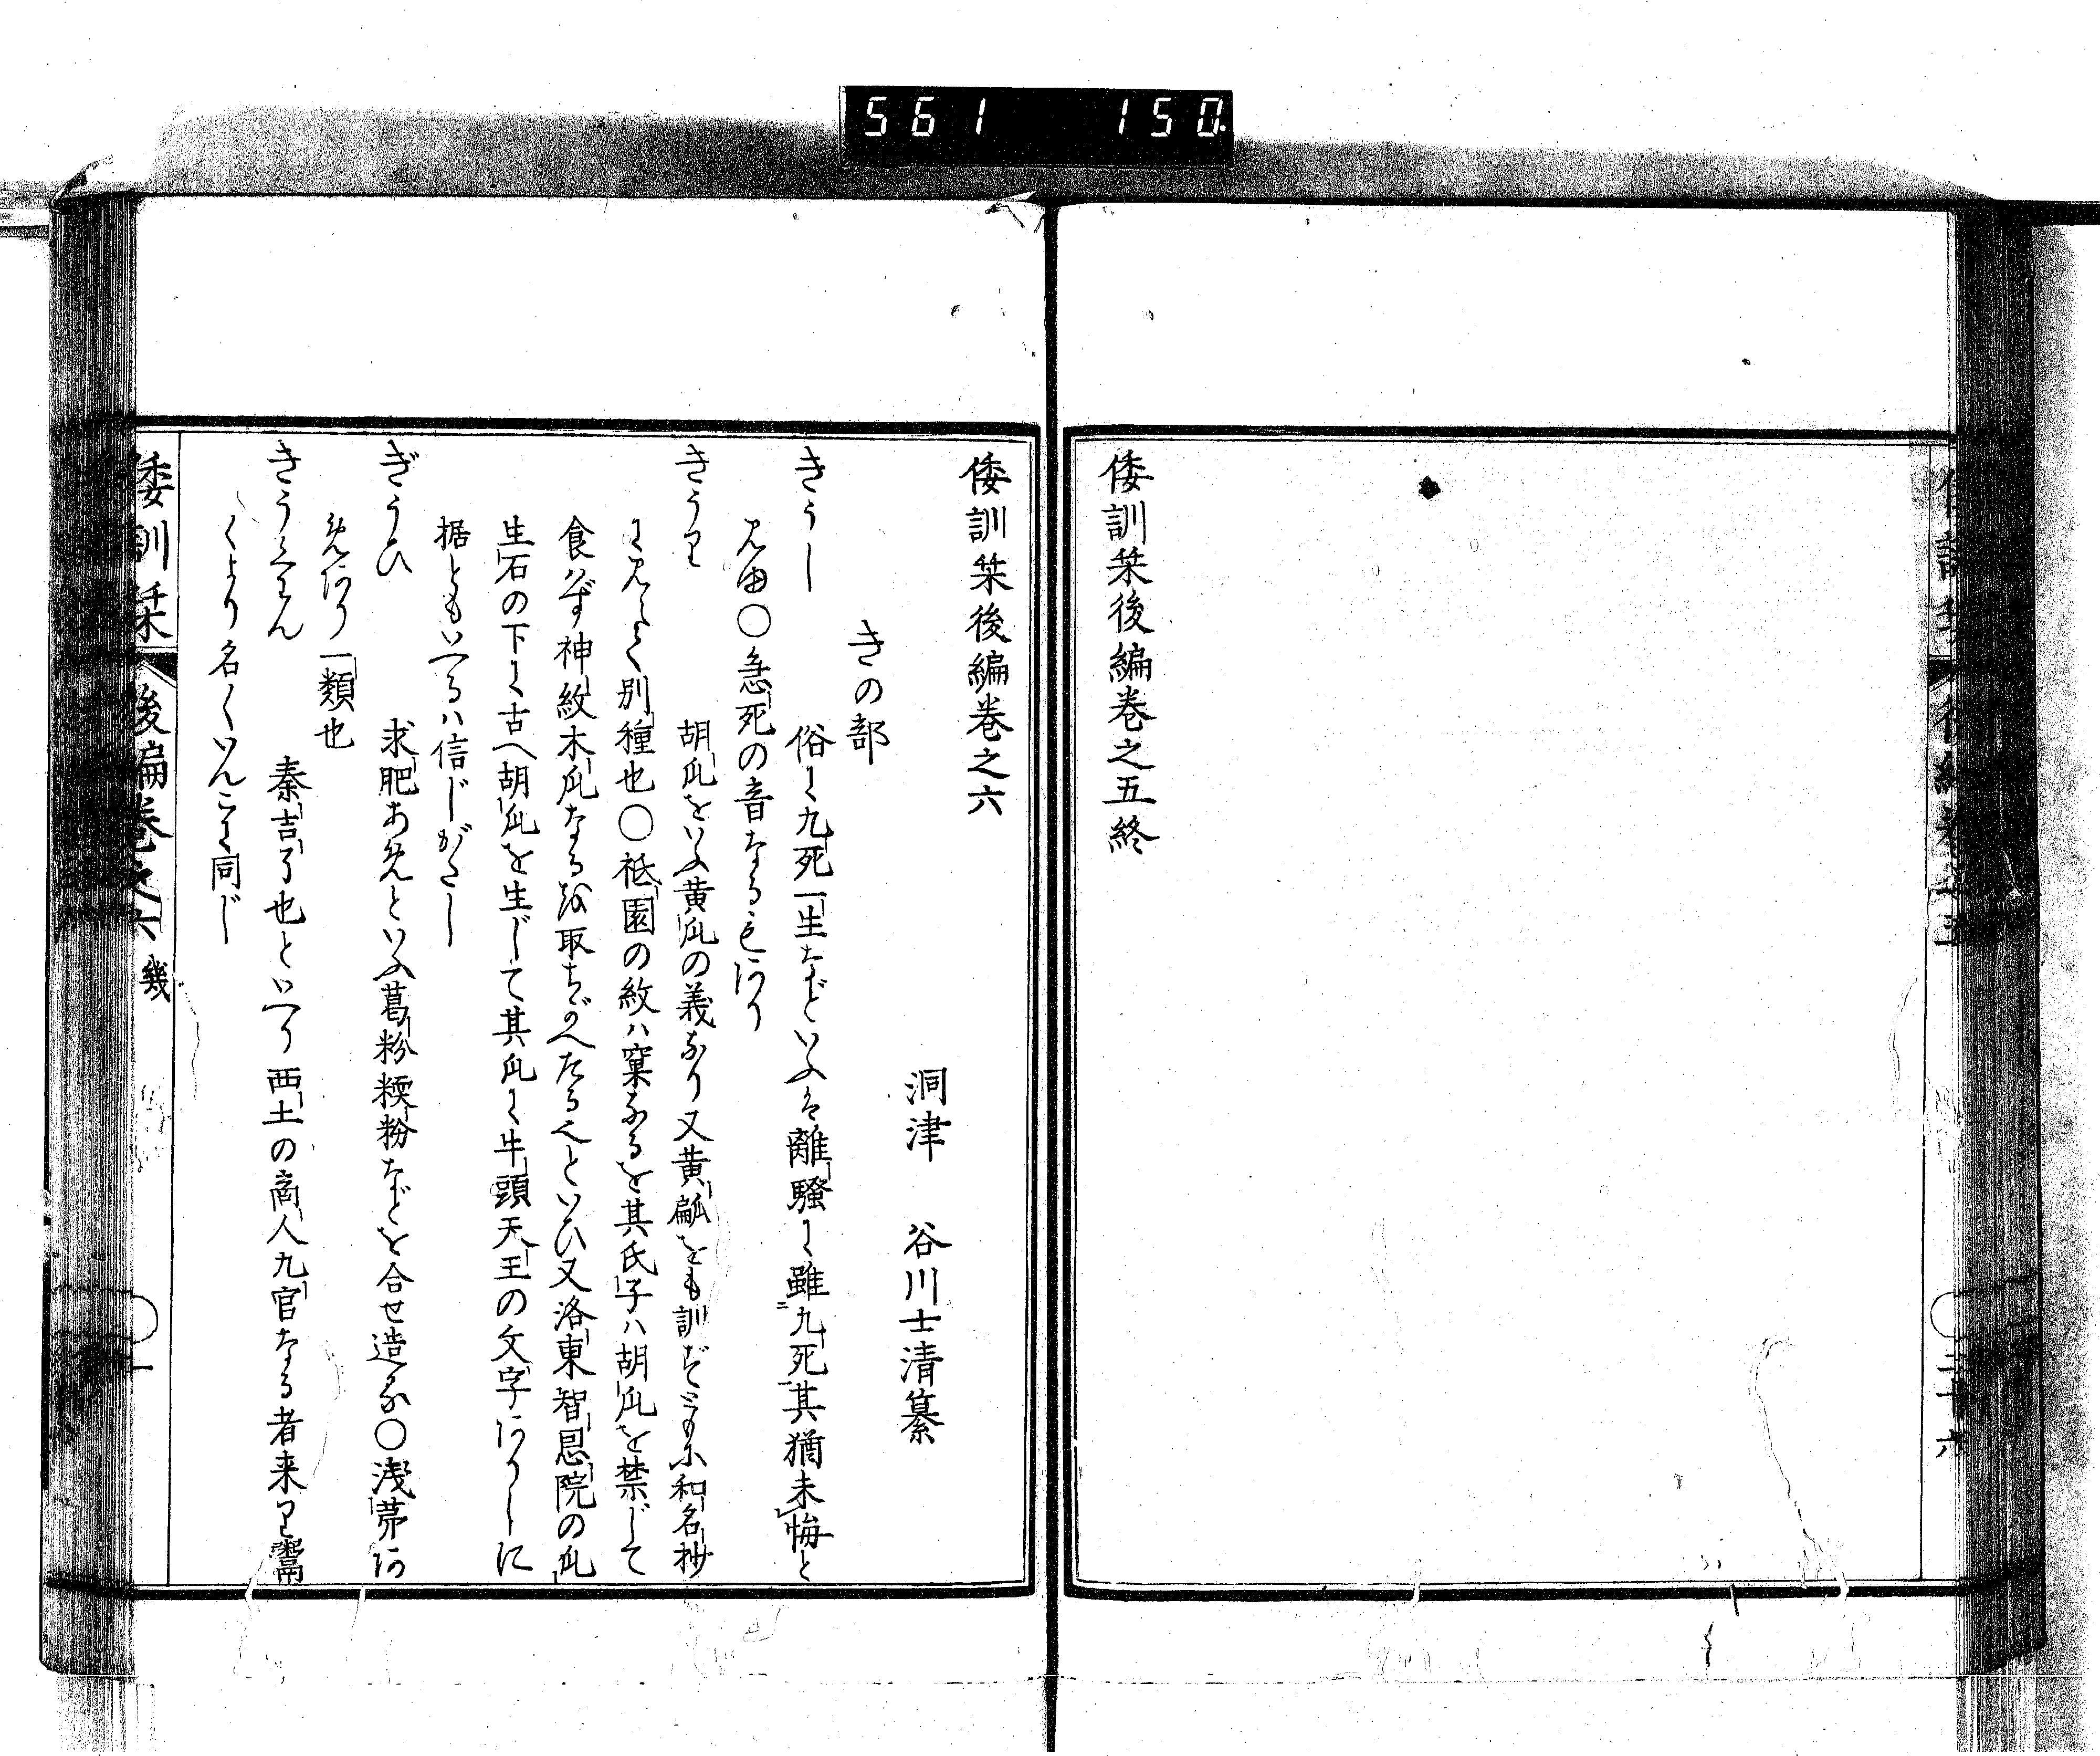 561 150
倭訓栞後編巻之五終
倭訓栞後編巻之六
洞津 谷川士清纂
きの部
きうし 俗に九死一生などいふは離騒に雖九死其猶未悔と
見ゆ○急死の音なるもあり
きうり 胡瓜をいふ黄瓜の義なり又黄㼐をも訓ぜり和名抄
に見えて別種也○祗園の紋ハ窠なるを其氏子ハ胡瓜を禁じて
食はず神紋木瓜なるを取ちがへたるへといひ又洛東智恩院の瓜
生石の下に古へ胡瓜を生じて其瓜に牛頭天王の文字ありしに
据ともいへるハ信じがたし
ぎうひ 求肥あめといふ葛粉糯粉などを合せ造る○浅茅あ
めあり一類也
きうくわん 秦吉了也といへり西土の商人九官なる者来り鬻
くより名くいんこに同じ
倭訓栞 後編巻之六 幾 一